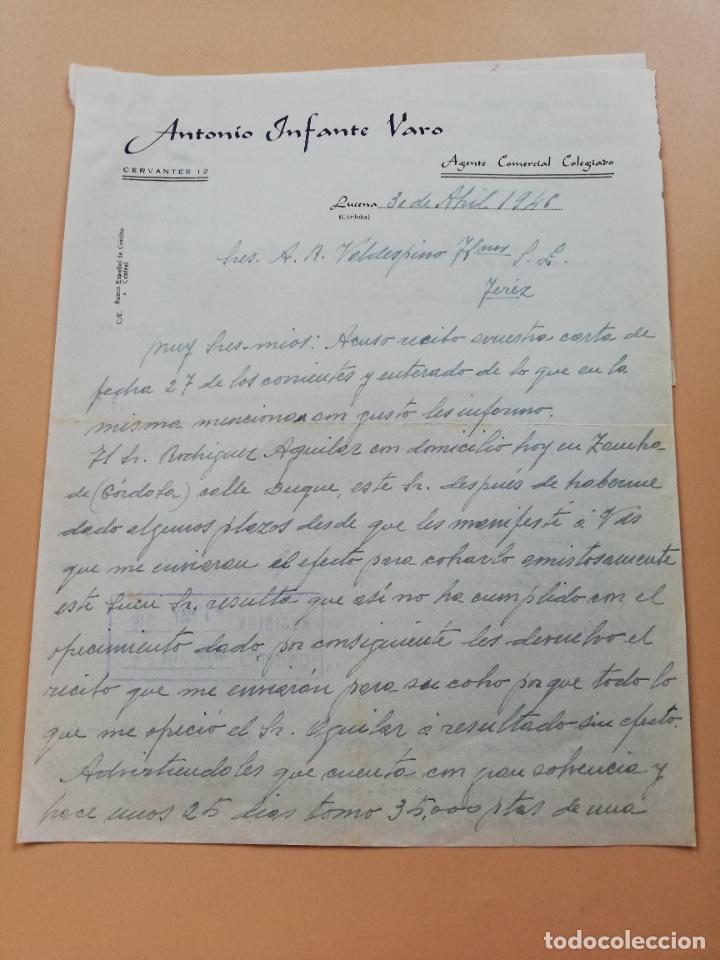 Antonio Infante Varo
CERVANTES 12
Agente Comercial Colegiado
Lucena 30 de Abril 1946
(Córdoba)
C/C. Banco Español de Crédito
" Central
Sres. A. R. Valdespino Hnos S. L.
Jerez
Muy Sres. mios: Acuso recibo a vuestra carta de
fecha 27 de los corrientes y enterado de lo que en la
misma mencionan con gusto les informo.
El Sr. Rodriguez Aguilar con domicilio hoy en Zambra
de (Córdoba) calle Duque, este Sr. después de haberme
dado algunos plazos desde que les manifesté á Vds
que me enviaran el efecto para cobarlo amistosamente
este buen Sr. resulta que asi no ha cumplido con el
ofrecimiento dado, por consiguiente les devuelvo el
recibo que me enviarán para su cobro porque todo lo
que me ofreció el Sr. Aguilar á resultado sin efecto.
Advirtiendoles que cuenta con gran solvencia y
hace unos 25 dias tomo 35,000 ptas de una
RECIBIDA
todocoleccion
todocoleccion.net